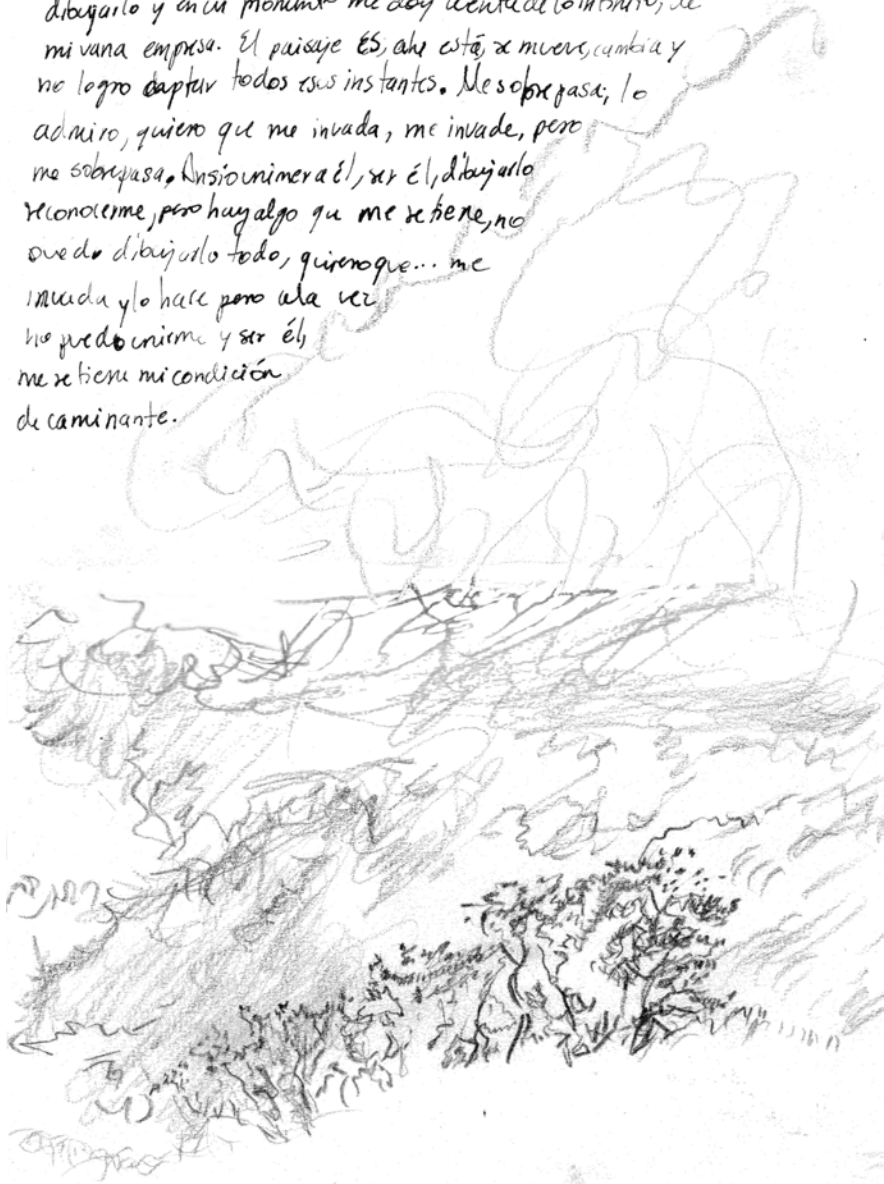 dibujarlo y en un momento me doy cuenta de lo infinito, de
mi vana empresa. El paisaje ES, ahí está, se mueve, cambia y
no logro captar todos esos instantes. Me sobrepasa; lo
admiro, quiero que me invada, me invade, pero
me sobrepasa. Ansío unirme a él, ser él, dibujarlo
reconocerme, pero hay algo que me retiene, no
puedo dibujarlo todo, quiero que... me
invada y lo hace pero a la vez
no puedo unirme y ser él,
me retiene mi condición
de caminante.